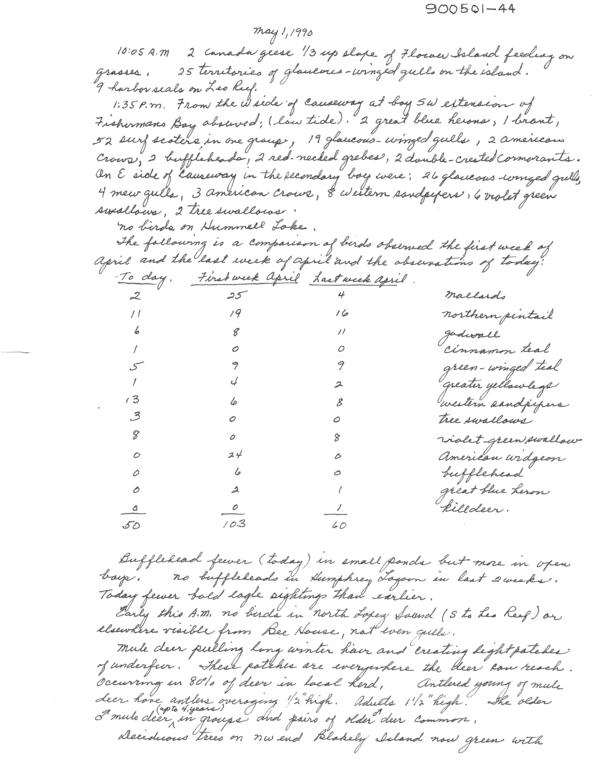 900501-44
May 1, 1990
10:05 A.M 2 Canada geese 1/3 up slope of Flower Island feeding on
grasses. 25 territories of glaucous-winged gulls on the island.
9 harbor seals on Leo Reef.
1:35 P.m. From the W side of causeway at bay SW extension of
Fishermans Bay observed; (low tide). 2 great blue herons, 1 brant,
52 surf scoters, in one group, 19 glaucous-winged gulls, 2 american
crows, 2 buffleheads, 2 red-necked grebes, 2 double-crested cormorants.
On E side of causeway in the secondary bay were; 26 glaucous-winged gulls,
4 mew gulls, 3 American crows, 8 western sandpipers, 6 violet green
swallows, 2 tree swallows.
No birds on Hummell Lake.
The following is a comparison of birds observed the first week of
April and the last week of april and the observations of today:
To day. First week April Last week April.
2 25 4 mallards
11 19 16 northern pintail
6 8 11 gadwall
1 0 0 cinnamon teal
5 9 9 green-winged teal
1 4 2 greater yellowlegs
13 6 8 western sandpipers
3 0 0 tree swallows
8 0 8 violet green swallow
0 24 0 American widgeon
0 6 0 bufflehead
0 2 1 great blue heron
0 0 1 killdeer.
50 103 60
Bufflehead fewer (today) in small ponds but more in open
bays. No buffleheads in Humphrey Lagoon in last 2 weeks.
Today fewer bald eagle sightings than earlier.
Early this A.M. no birds in North Lopez Sound (S to Leo Reef) or
elsewhere visible from Bee House, not even gulls.
Mule deer pulling long winter hair and creating light patches
of underfur. These patches are everywhere the deer can reach.
Occurring in 80% of deer in local herd. Antlered young of mule
deer have antlers averaging 1/2" high. Adults 1 1/2" high. The older
(up to 4 years)
♂ mule deer in groups and pairs of older ♂ deer common.
Deciduous trees on NW end Blakely Island now green with